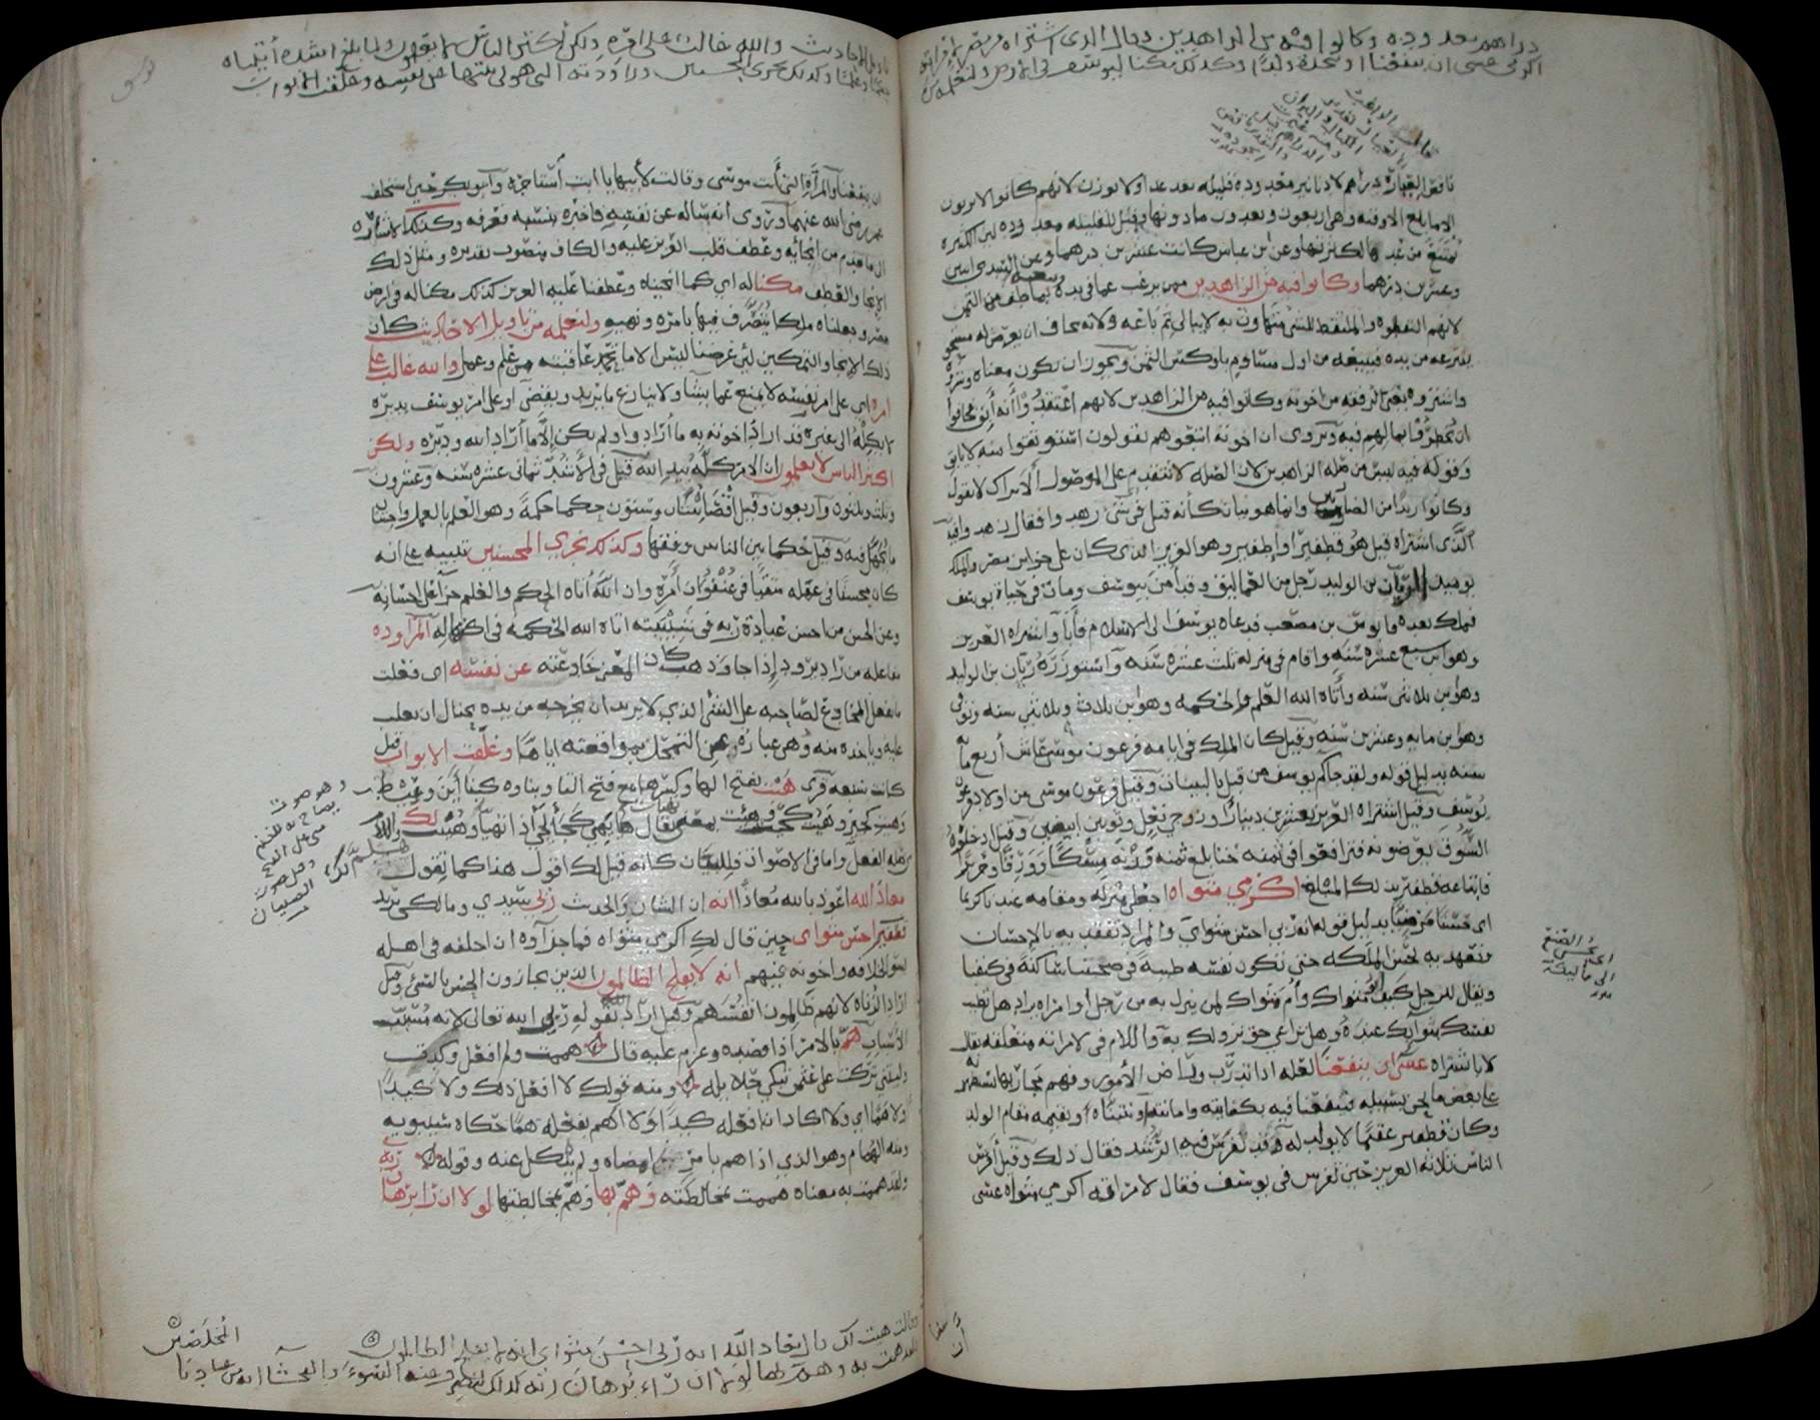 دراهم معدودة وكانوا فيه من الزاهدين وقال الذي اشتراه من مصر لامرأته
اكرمي عسى ان ينفعنا او نتخذه ولدا وكذلك مكنا ليوسف في الارض ولنعلمه من
ناقص العيار دراهم لا دنانير معدودة قليلة تعد عدا ولا توزن لانهم كانوا لا يزنون
الا ما بلغ الاوقية وهي اربعون ويعدون ما دونها وقيل للقليلة معدودة لان الكثيرة
يمتنع من عدها لكثرتها وعن ابن عباس كانت عشرين درهما وعن السدي اثنين
وعشرين درهما وكانوا فيه من الزاهدين ممن يرغب عما في يده فيبيعه بما طف من الثمن
لانهم التقطوه والملتقط للشئ متهاون به لا يبالي بم باعه ولانه يخاف ان يعرض له مستحق
ينتزعه من يده فيبيعه من اول مساوم باوكس الثمن ويجوز ان يكون معناه وشروه
واشتروه يعني الرفقة من اخوته وكانوا فيه من الزاهدين لانهم اعتقدوا أنه أبق فخافوا
ان يخطروا بمالهم فيه ويروى ان اخوته اتبعوهم يقولون استوثقوا منه لا يابق
وقوله فيه ليس من صلة الزاهدين لان الصلة لا تتقدم على الموصول الا تراك لا تقول
وكانوا زيدا من الضاربين وانما هو بيان كأنه قيل في أي شئ زهدوا فقال زهدوا فيه
الذي اشتراه قيل هو قطفير او إطفير وهو العزيز الذي كان على خزاين مصر والملك
يوميد الريان بن الوليد رجل من العماليق وقد آمن بيوسف ومات في حياة يوسف
فملك بعده قابوس بن مصعب فدعاه يوسف الى الاسلام فأبا واشتراه العزيز
وهو ابن سبع عشرة سنة واقام في منزله ثلث عشرة سنة واستوزره ريان بن الوليد
وهو ابن ثلاثين سنة وأتاه الله العلم والحكمة وهو ابن ثلاث وثلاثين سنة وتوفي
وهو ابن ماية وعشرين سنة وقيل كان الملك في ايامه فرعون موسى عاش أربع ماية
سنة بدليل قوله ولقد جاكم يوسف من قبل بالبينات وقيل فرعون موسى من اولاد فرعون
يوسف وقيل اشتراه العزيز بعشرين دينارا وزوجي نعل وثوبين ابيضين وقيل ادخلوه
السوق يعرضونه فترافعوا في ثمنه حتا بلغ ثمنه وزنه مسكا وورقا وحريرا
فابتاعه قطفير بذلك المبلغ اكرمي مثواه اجعلي منزله ومقامه عندنا كريما
اي حسنا مرضيا بدليل قوله انه ربي احسن مثواي والمراد تفقديه بالاحسان
وتعهديه بحسن الملكة حتى تكون نفسه طيبة في صحبتنا ساكنة في كنفنا
ويقال للرجل كيف ابو مثواك وأم مثواك لمن ينزل به من رجل او امراة يراد هل تطيب
نفسك بثوايك عنده وهل تراعي حق نزولك به واللام في لامراته متعلقة بقال
لا باشتراه عسى ان ينفعنا لعله اذا تدرب وراض الأمور وفهم مجاريها نستظهر به
على بعض ما نحن بسبيله فينفعنا فيه بكفايته وامانته او نتبناه ونقيمه مقام الولد
وكان قطفير عقيما لا يولد له وقد تفرس فيه الرشد فقال ذلك وقيل أفرس
الناس ثلاثة العزيز حين تفرس في يوسف فقال لامراته اكرمي مثواه عسى
اي تحسن الصنع
تأويل الاحاديث والله غالب على امره ولكن أكثر الناس لا يعلمون ولما بلغ اشده أتيناه
حكما وعلما وكذلك نجزي المحسنين وراودته التي هو في بيتها عن نفسه وغلقت الابواب
ان ينفعنا والمرأة التي أتت موسى وقالت لأبيها يا ابت أستاجره وأبو بكر حين استخلف
عمر رضي الله عنهما وروى انه ساله عن نفسه فاخبره بنسبه فعرفه وكذلك الاشارة
الى ما تقدم من انجائه وعطف قلب العزيز عليه والكاف منصوب تقديره ومثل ذلك
الانجا والعطف مكنا له اي كما انجيناه وعطفنا عليه العزيز كذلك مكنا له في ارض
مصر وجعلناه ملكا يتصرف فيها بامره ونهيه ولنعلمه من تاويل الاحاديث كان
ذلك الانجا والتمكين لان غرضنا ليس الا ما تحمد عاقبته من علم وعمل والله غالب على
امره اي على امر نفسه لا يمنع عما يشا ولا ينازع ما يريد ويقضي او على امر يوسف يدبره
لا يكله الى غيره قد اراد اخوته به ما أرادوا ولم يكن إلا ما أراد الله ودبره ولكن
اكثر الناس لا يعلمون ان الامر كله بيد الله قيل في الأشد ثماني عشرة سنة وعشرون
وثلث وثلثون واربعون وقيل أقصاه ثنتان وستون حكما حكمة وهو العلم بالعمل واجتناب
ما يجهل فيه وقيل حكما بين الناس وفقها وكذلك نجزي المحسنين تنبيه على انه
كان محسنا في عمله متقيا في عنفوان أمره وان الله أتاه الحكم والعلم جزآ على احسانه
وعن الحسن من احسن عبادة ربه في شبيبته اتاه الله الحكمة في اكتهاله المراودة
مفاعلة من راد يرود إذا جا وذهب كان المعنى خادعته عن نفسه اي فعلت
ما يفعل المخادع لصاحبه على الشئ الذي لا يريد ان يخرجه من يده يحتال ان يغلب
عليه وياخذه منه وهي عبارة عن التمحل لمواقعته اياها وغلقت الابواب قيل
كانت سبعة قرى هيت بفتح الها وكسرها مع فتح التا وبناوه كبنا أين وعيط
وهيت كجير وهيت كحيث وهئت بمعنى تهيات يقال هاء يهيئ كجاء يجئ اذا تهيأ وهيئت لك واللام
من صلة الفعل واما في الاصوات فللبيان كانه قيل لك اقول هذا كما تقول هلم لك
معاذ الله اعوذ بالله معاذا انه ان الشان والحديث ربي سيدي ومالكي يريد
قطفير احسن مثواي حين قال لك اكرمي مثواه فما جزآوه ان اخلفه في اهله
سوا الخلافة واخونه فيهم انه لا يفلح الظالمون الذين يجازون الحسن بالسئ وقيل
اراد الزناة لانهم ظالمون انفسهم وقيل اراد بقوله ربي الله تعالى لانه مسبب
الاسباب هم بالامر اذا قصده وعزم عليه قال هممت ولم افعل وكدت
وليتني تركت على عثمن تبكي حلايله ومنه قولك لا افعل ذلك ولا كيدا
ولا هما اي ولا اكاد ان افعله كيدا ولا اهم بفعله هما حكاه سيبويه
ومنه الهمام وهو الذي اذا هم بامر امضاه ولم ينكل عنه وقوله
ولقد همت به معناه هممت بمخالطته وهم بها وهم بمخالطتها لولا ان رأ برهان ربه
وهو صوت
وقالت هيت لك قال معاذ الله انه ربي احسن مثواي انه لا يفلح الظالمون
ولقد همت به وهم بها لولا ان رأء برهان ربه كذلك لنصرف عنه السوء والفحشآ انه من عبادنا
المخلصين